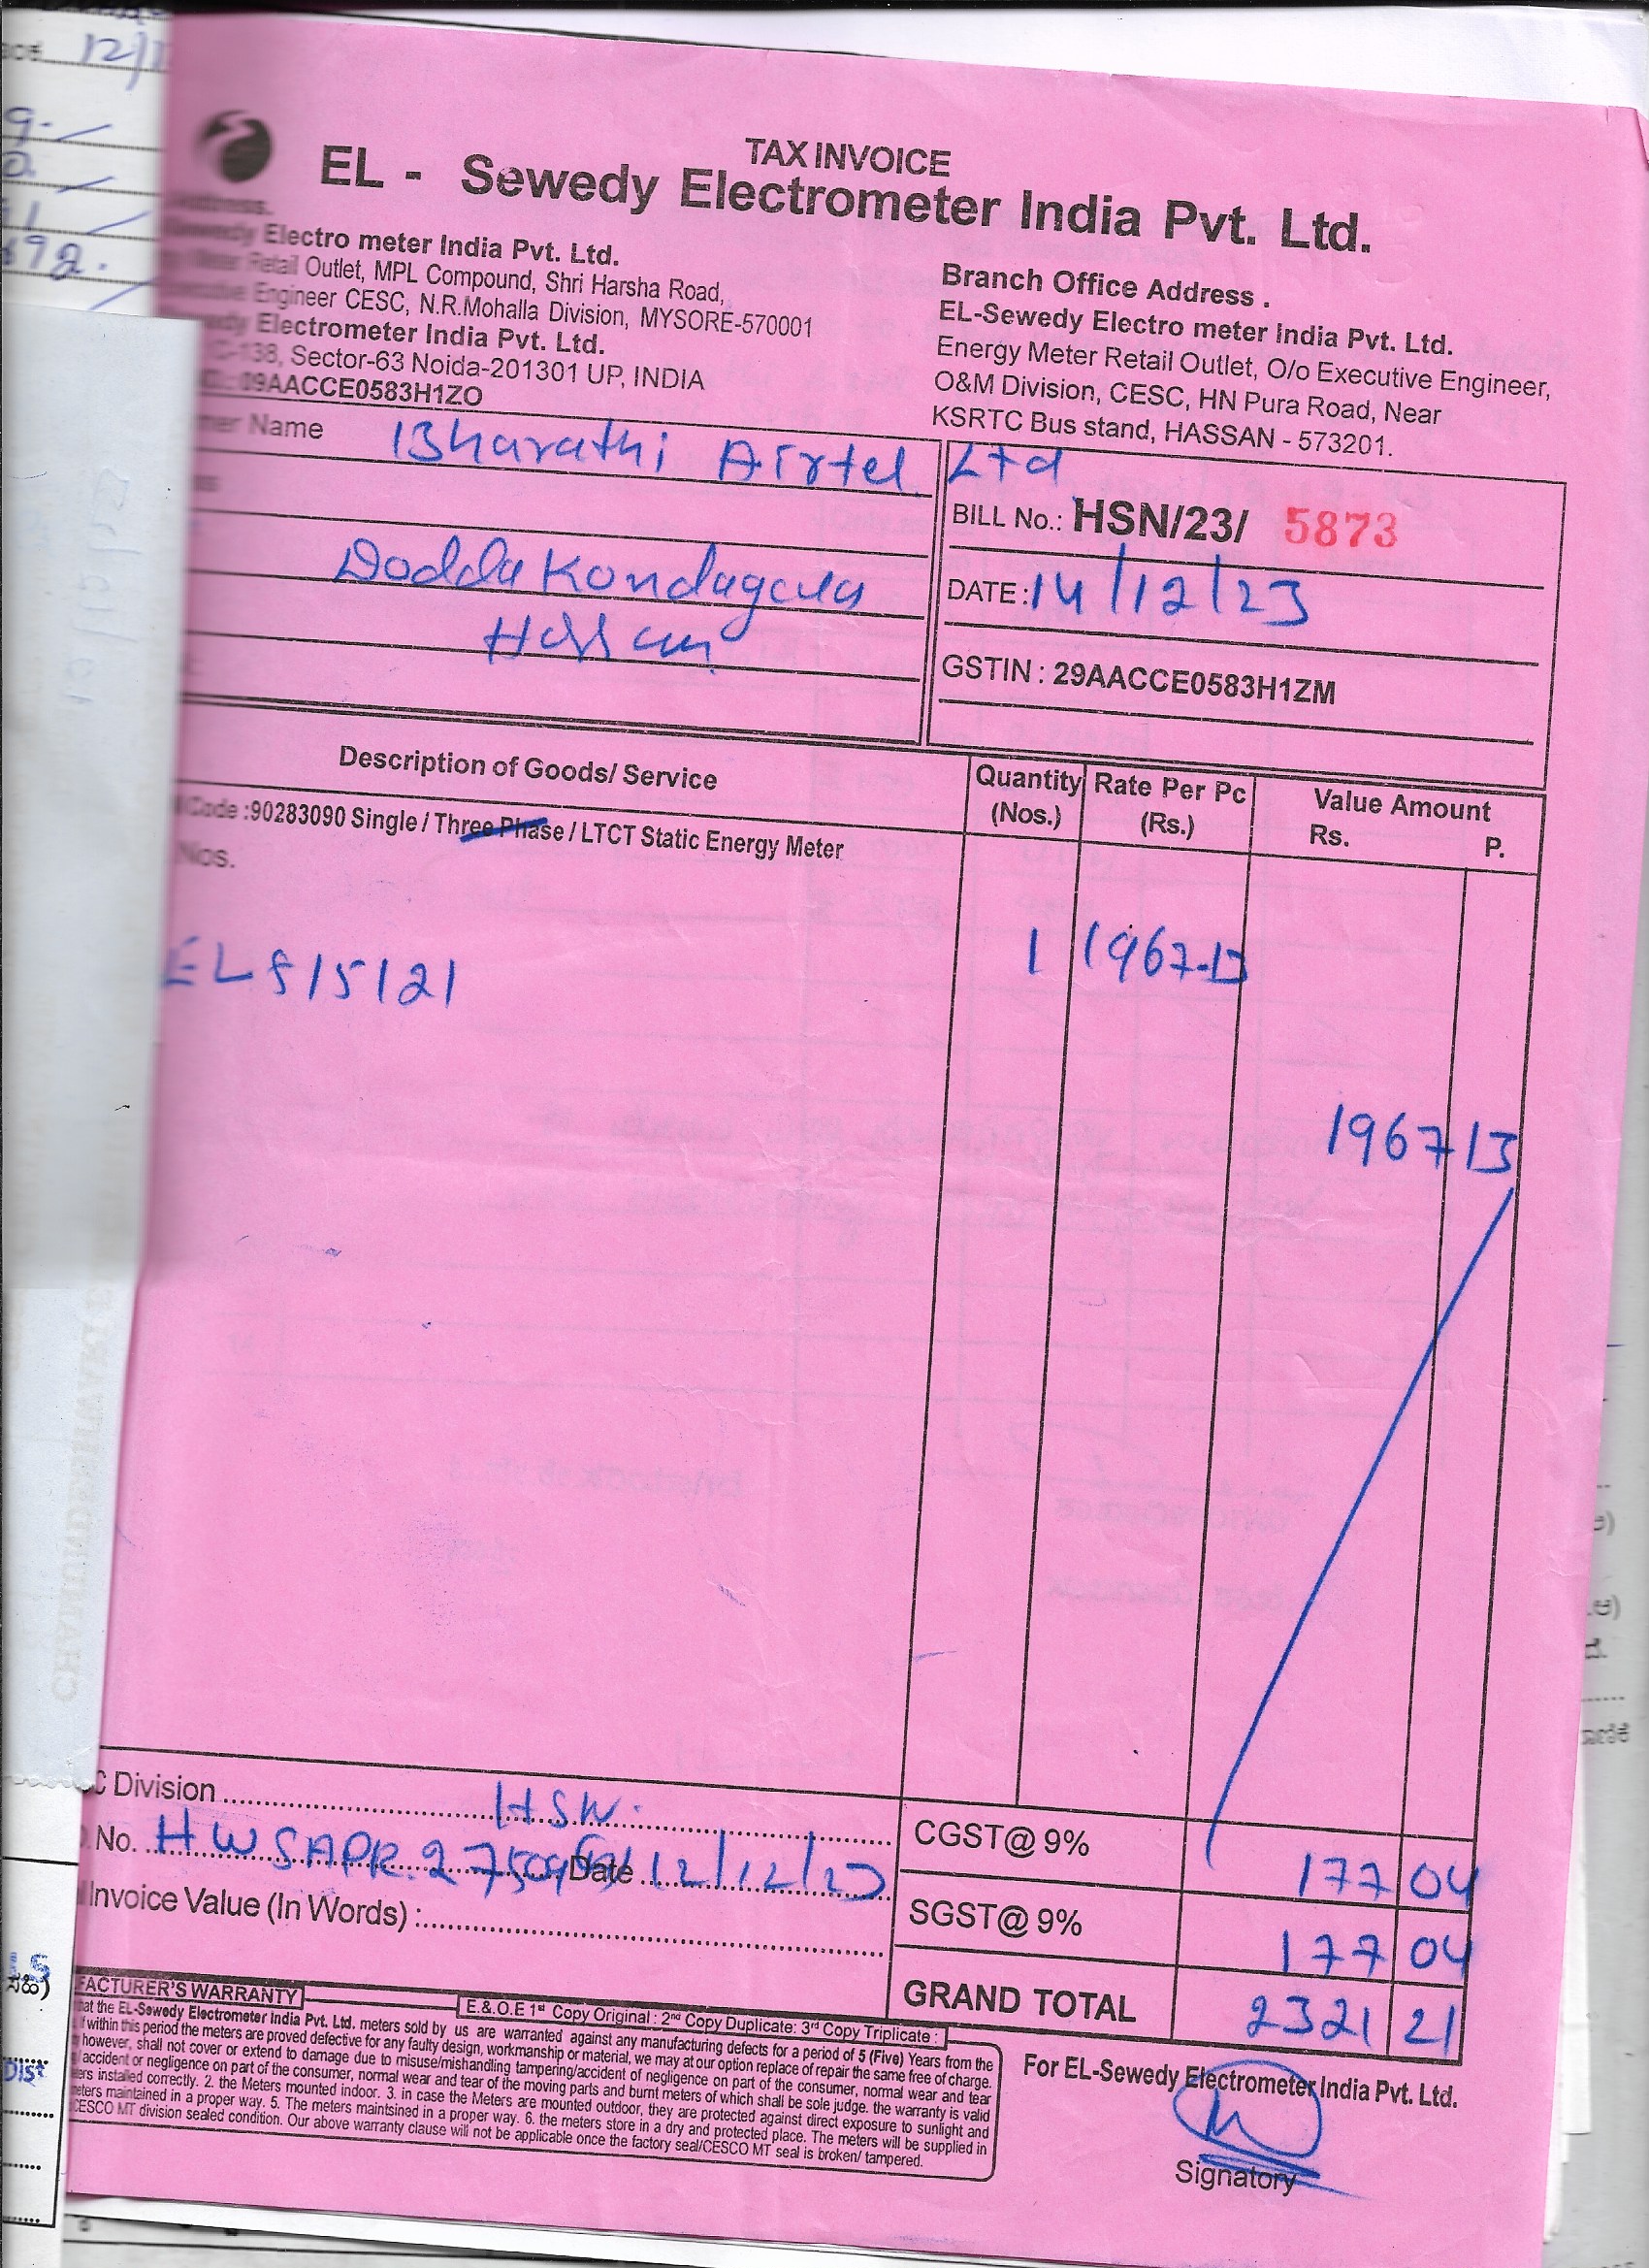 TAX INVOICE
EL - Sewedy Electrometer India Pvt. Ltd.
Electro meter India Pvt. Ltd.
Retail Outlet, MPL Compound, Shri Harsha Road,
Engineer CESC, N.R.Mohalla Division, MYSORE-570001
Electrometer India Pvt. Ltd.
138, Sector-63 Noida-201301 UP, INDIA
09AACCE0583H1ZO
Branch Office Address .
EL-Sewedy Electro meter India Pvt. Ltd.
Energy Meter Retail Outlet, O/o Executive Engineer,
O&M Division, CESC, HN Pura Road, Near
KSRTC Bus stand, HASSAN - 573201.
Name Bharathi Airtel Ltd
Dodda Kondagula
Hassan
BILL No.: HSN/23/ 5873
DATE : 14/12/23
GSTIN : 29AACCE0583H1ZM
Description of Goods/ Service Quantity (Nos.) Rate Per Pc (Rs.) Value Amount Rs. P.
Code :90283090 Single / Three Phase / LTCT Static Energy Meter
Nos.
1 1967-13
1967 13
C Division HSN.
No. Date 12/12/23
Invoice Value (In Words) :
CGST@ 9% 177 04
SGST@ 9% 177 04
GRAND TOTAL 2321 21
FACTURER'S WARRANTY
E.& O.E 1st Copy Original : 2nd Copy Duplicate: 3rd Copy Triplicate :
at the EL-Sewedy Electrometer India Pvt. Ltd. meters sold by us are warranted against any manufacturing defects for a period of 5 (Five) Years from the
if within this period the meters are proved defective for any faulty design, workmanship or material, we may at our option replace of repair the same free of charge.
however, shall not cover or extend to damage due to misuse/mishandling tampering/accident of negligence on part of the consumer, normal wear and tear
accident or negligence on part of the consumer, normal wear and tear of the moving parts and burnt meters of which shall be sole judge. the warranty is valid
ers installed correctly. 2. the Meters mounted indoor. 3. in case the Meters are mounted outdoor, they are protected against direct exposure to sunlight and
meters maintained in a proper way. 5. The meters maintsined in a proper way. 6. the meters store in a dry and protected place. The meters will be supplied in
CESCO MT division sealed condition. Our above warranty clause will not be applicable once the factory seal/CESCO MT seal is broken/ tampered.
For EL-Sewedy Electrometer India Pvt. Ltd.
Signatory